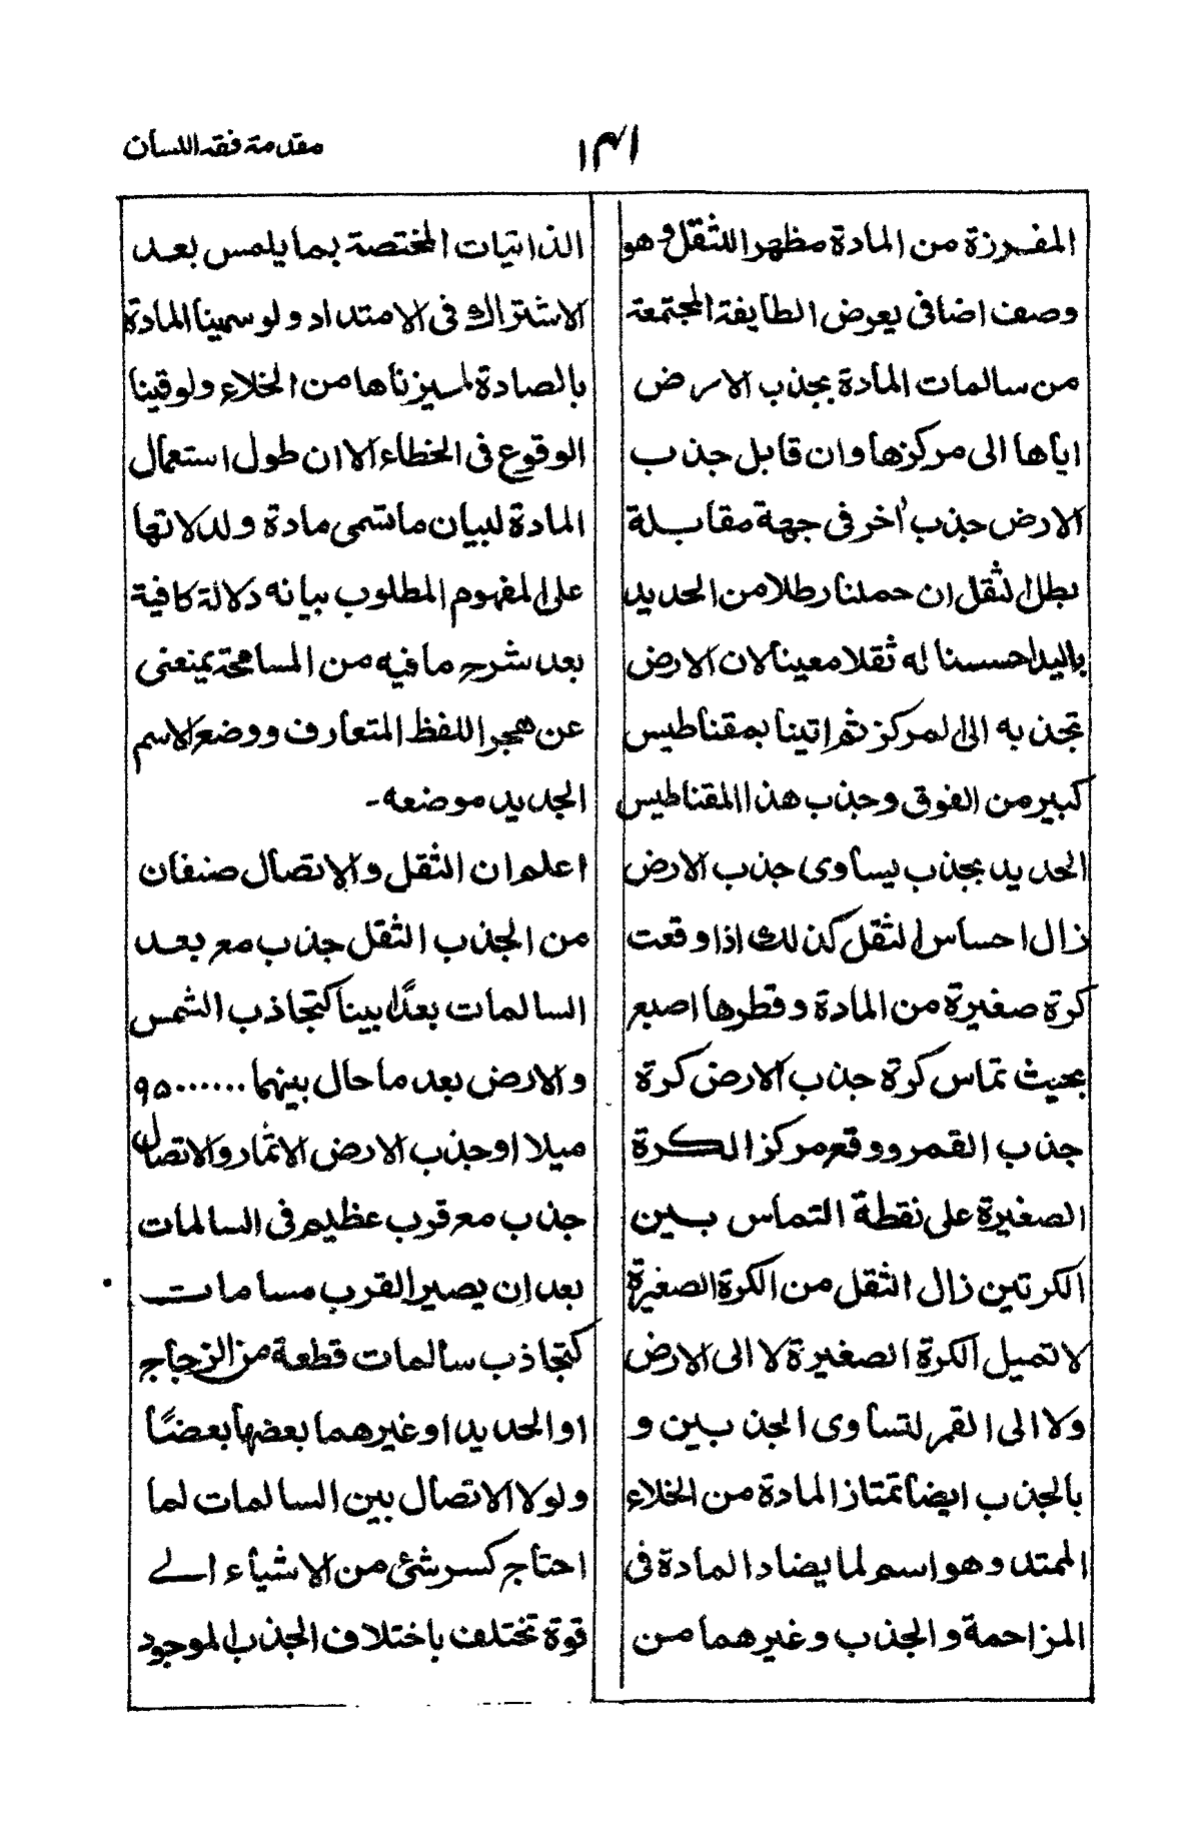 مقدمة فقه اللسان
١٣١
المفرزة من المادة مظهر الثقل وهو
وصف اضافى يعرض الطايفة المجتمعة
من سالمات المادة بجذب الارض
اياها الى مركزها وان قابل جذب
الارض جذب اخر فى جهة مقابلة
بطل الثقل ان حملنا رطلا من الحديد
باليد احسسنا له ثقلا معينا لان الارض
تجذبه الى المركز ثم اتينا بمقناطيس
كبير من الفوق وجذب هذا المقناطيس
الحديد بجذب يساوى جذب الارض
زال احساس الثقل كذلك اذا وقعت
كرة صغيرة من المادة وقطرها اصبع
بحيث تماس كرة جذب الارض كرة
جذب القمر ووقع مركز الكرة
الصغيرة على نقطة التماس بين
الكرتين زال الثقل من الكرة الصغيرة
لا تميل الكرة الصغيرة لا الى الارض
ولا الى القمر لتساوى الجذبين و
بالجذب ايضا تمتاز المادة من الخلاء
الممتد وهو اسم لما يضاد المادة فى
المزاحمة والجذب وغيرهما من
الذاتيات المختصة بما يلمس بعد
الاشتراك فى الامتداد ولو سمينا المادة
بالصادة لميزناها من الخلاء ولوقينا
الوقوع فى الخطاء الا ان طول استعمال
المادة لبيان ما تسمى مادة ولدلالتها
على المفهوم المطلوب بيانه دلالة كافية
بعد شرح ما فيه من المسامحة يمنعنى
عن هجر اللفظ المتعارف ووضع الاسم
الجديد موضعه-
اعلم ان الثقل والاتصال صنفان
من الجذب الثقل جذب مع بعد
السالمات بعدًا بينا كتجاذب الشمس
والارض بعد ما حال بينهما ٩٥٠٠٠٠٠٠
ميلا او جذب الارض الاثمار والاتصال
جذب مع قرب عظيم فى السالمات
بعد ان يصير القرب مسامات
كتجاذب سالمات قطعة من الزجاج
او الحديد او غيرهما بعضها بعضًا
ولولا الاتصال بين السالمات لما
احتاج كسر شئ من الاشياء الے
قوة تختلف باختلاف الجذب الموجود